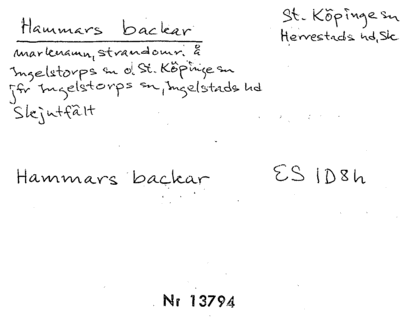 Hammars backar
St. Köpinge sn
Herrestads hd, Sk
marknamn, strandomr. å
Ingelstorps sn o. St. Köpinge sn
jfr Ingelstorps sn, Ingelstads hd
Skjutfält
Hammars backar ES 1D8h
Nr 13794